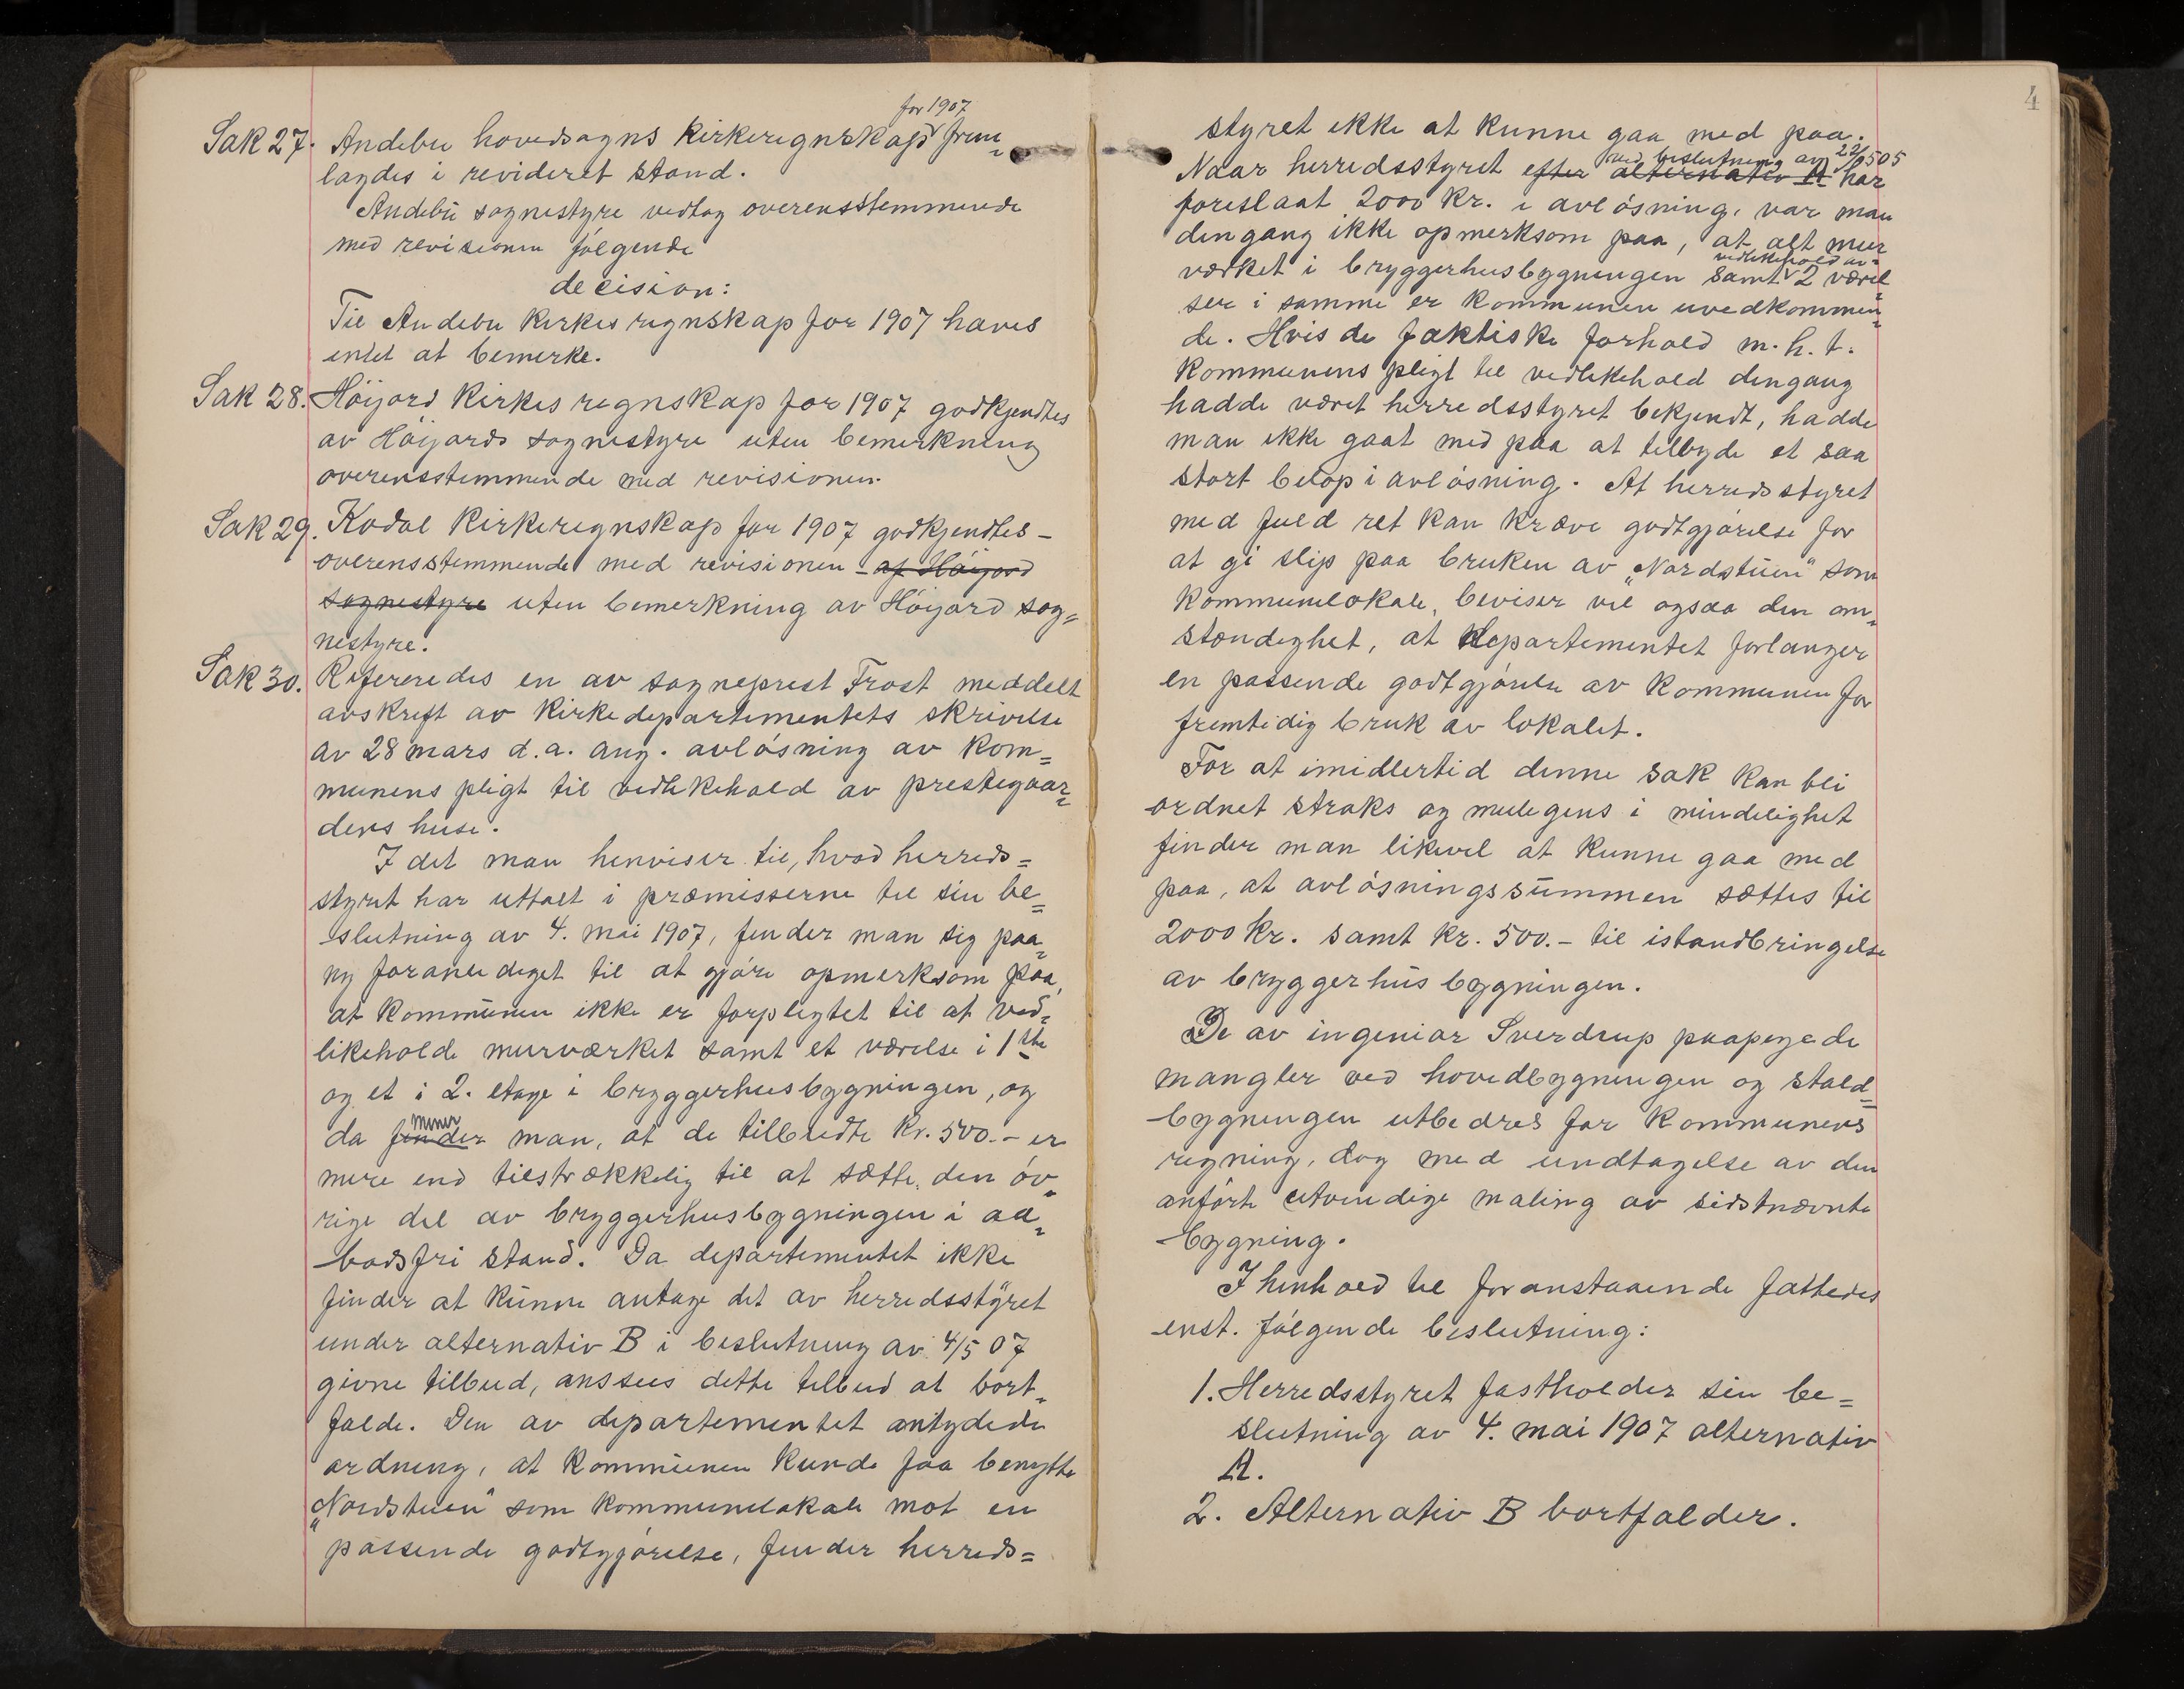 for 1907
Sak 27. Andebu hovedsogns kirkeregnskap frem=
lagdes i revideret stand.
Andebu sognestyre vedtog overensstemmende
med revisionen følgende
decision:
Til Andebu kirkes regnskap for 1907 haves
intet at bemerke.
Sak 28. Höijord kirkes regnskap for 1907 godkjendtes
av Höijords sognestyre uten bemerkning
overensstemmende med revisionen.
Sak 29. Kodal kirkeregnskap for 1907 godkjendtes –
overensstemmende med revisionen – af Höijord
sognestyre uten bemerkning av Höijord sog=
nestyre.
Sak 30. Refereredes en av sogneprest Frost meddelt
avskrift av kirkedepartementets skrivelse
av 28 mars d.a. ang. avlösning av kom=
munens pligt til vedlikehold av prestegaar=
dens huse.
I det man henviser til, hvad herreds=
styret har uttalt i præmisserne til sin be=
slutning av 4. mai 1907, finder man sig paa
ny foranlediget til at gjöre opmerksom paa,
at kommunen ikke er forpligtet til at ved=
likeholde murværket samt et værelse i 1ste
og et i 2. etage i bryggerhusbygningen, og
mener
da finder man, at de tilbudte kr. 500.– er
mere end tilstrækkelig til at sætte den öv=
rige del av bryggerhusbygningen i aa=
bodsfri stand. Da departementet ikke
finder at kunne antage det av herredsstyret
under alternativ B i beslutning av 4/5 07
givne tilbud, ansees dette tilbud at bort=
falde. Den av departementet antydede
ordning, at kommunen kunde faa benytte
„Nordstuen“ som kommunelokale mot en
passende godtgjörelse, finder herreds=
4
styret ikke at kunne gaa med paa.
ved beslutning av 22/9 505
Naar herredsstyret efter alternativ A har
foreslaat 2000 kr. i avlösning, var man
dengang ikke opmerksom paa, at alt mur
vedlikehold av=
værket i bryggerhusbygningen samt 2 værel=
ser i samme er kommunen uvedkommen=
de. Hvis de faktiske forhold m.h.t.
kommunens pligt til vedlikehold dengang
hadde været herredsstyret bekjendt, hadde
man ikke gaat med paa at tilbyde et saa
stort belöp i avlösning. At herredsstyret
med fuld ret kan kræve godtgjörelse for
at gi slip paa bruken av „Nordstuen“ som
kommunelokale, beviser vel ogsaa den om=
stændighet, at departementet forlanger
en passende godtgjörelse av kommunen for
fremtidig bruk av lokalet.
For at imidlertid denne sak kan bli
ordnet straks og muligens i mindelighet
finder man likevel at kunne gaa med
paa, at avlösningssummen sættes til
2000 kr. samt kr. 500.– til istandbringelse
av bryggerhusbygningen.
De av ingeniør Sverdrup paapegede
mangler ved hovedbygningen og stald=
bygningen utbedres for kommunens
regning, dog med undtagelse av den
anförte utvendige maling av sidstnævnte
bygning.
I henhold til foranstaaende fattedes
enst. fölgende beslutning:
1. Herredsstyret fastholder sin be=
slutning av 4. mai 1907 alternativ
A.
2. Alternativ B bortfalder.